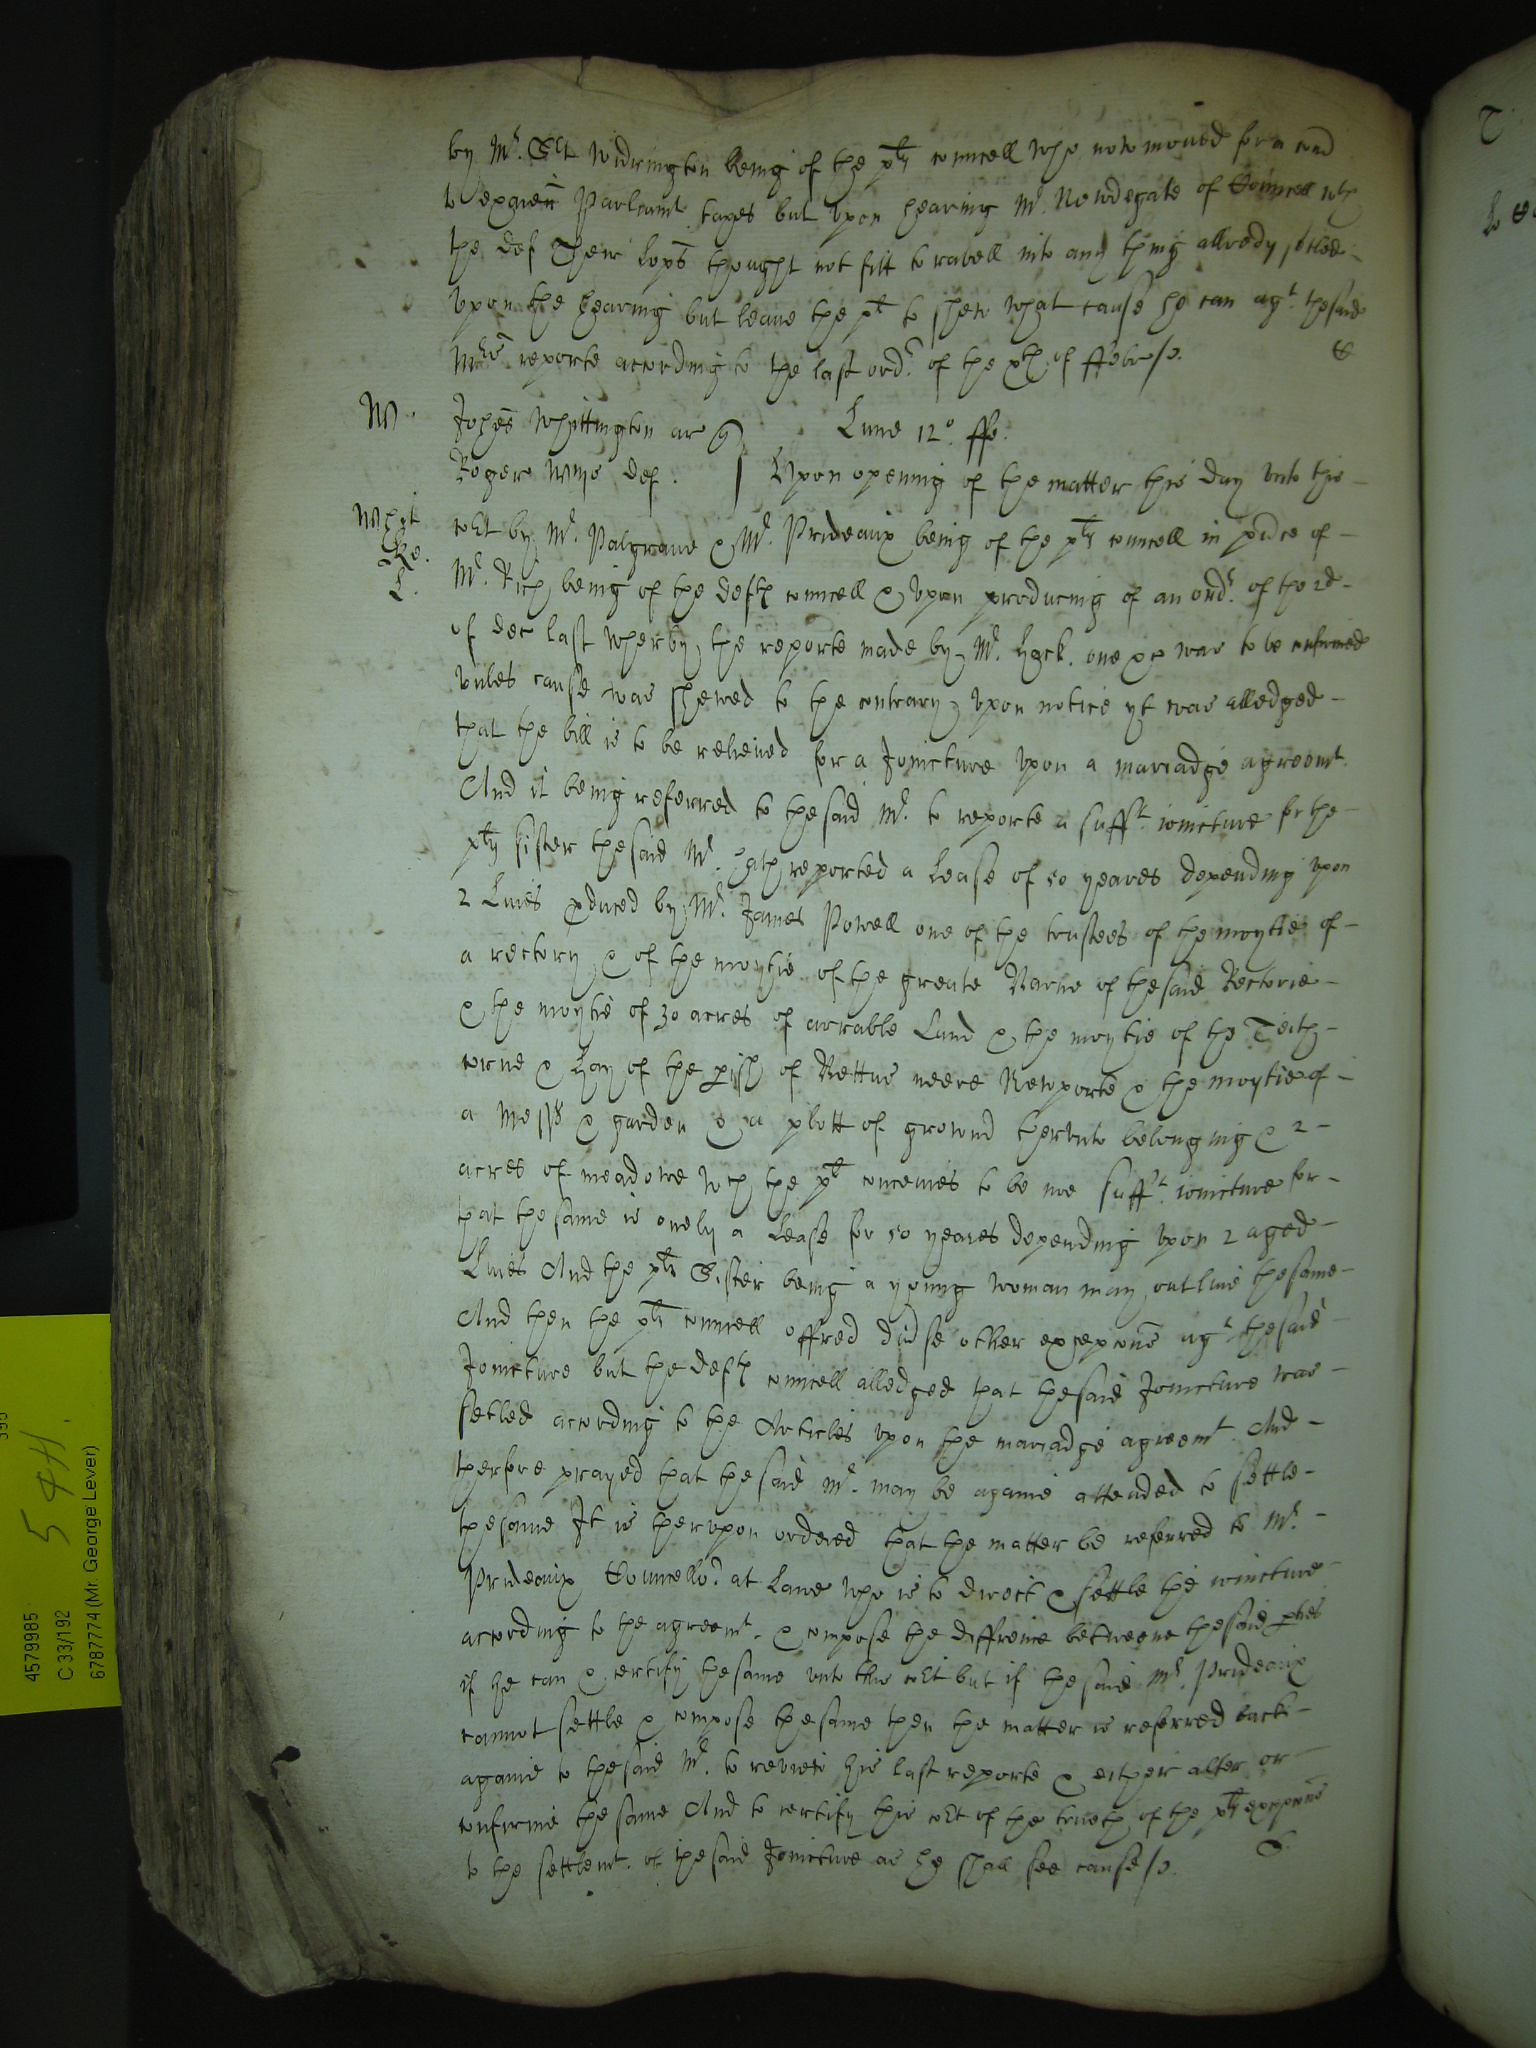 by Mr. Widrington being of the plts councell who now moved for a
to Parliamt but upon hearing Mr. Newdegate of Councell wth
the def Their Lopps thought not fitt to ravell into any thing allredy setled
upon the hearing but leave the plt to shew what cause he can agt. the said
Mrs reporte according to the last ordr. of the xth of ffebr
W. Johes Whittington ar Lune 12o. ffe.
Roger def. Upon opening of the matter this day unto this
Whit cort by Mr. Palgrave & Mr. Prideaux being of the plts councell in pnce of
Re. Mr. Rich being of the defts councell & upon producing of an ordr. of the 2d
L. of Dec last wherby the reporte made by Mr. Hack. one &c was to be confirmed
unles cause was shewed to the contrary upon notice yt was alledged
that the bill is to be releived for a Joincture upon a mariadge agreemt.
And it being referred to the said Mr. to reporte a sufft. ioincture for the
plts sister the said Mr. hath reported a Lease of 50 yeares depending upon
2 Lives pduced by Mr. James Powell one of the trustees of the moytie of
a rectory & of the moytie of the greate Barne of the said Rectorie
& the moytie of 30 acres of arrable Land & the moytie of the Teith
corne & hay of the pish of Bettus neere Newporte & the moytie of
a mess & garden & a plott of grownd therunto belonging & 2
acres of meadowe wch the plt conceives to be noe sufft. ioincture for
that the same is onely a Lease for 50 yeares depending upon 2 aged
Lives And the plts Sister being a young woman may outlive the same
And then the plts councell offred divse other excepcons agt. the said
Joincture but the defts councell alledged that the said Joincture was
setled according to the Articles upon the mariadge agreemt. And
therfore prayed that the said Mr. may be againe attended to settle
the same It is therupon ordered that the matter be referred to Mr.
Prideaux Councellor. at Lawe who is to direct & settle the ioincture
according to the agreemt. & compose the diffrence betweene the said pties
if he can & certify the same unto this cort but if the said Mr. Prideaux
cannot settle & compose the same then the matter is referred back
againe to the said Mr. to review his last reporte & either alter or
confirme the same And to certify this cort of the trueth of the plts excepcons
to the settlemt. of the said Joincture as he shall see cause
4579985
C 33/192
6787774 (Mr. George Lever)